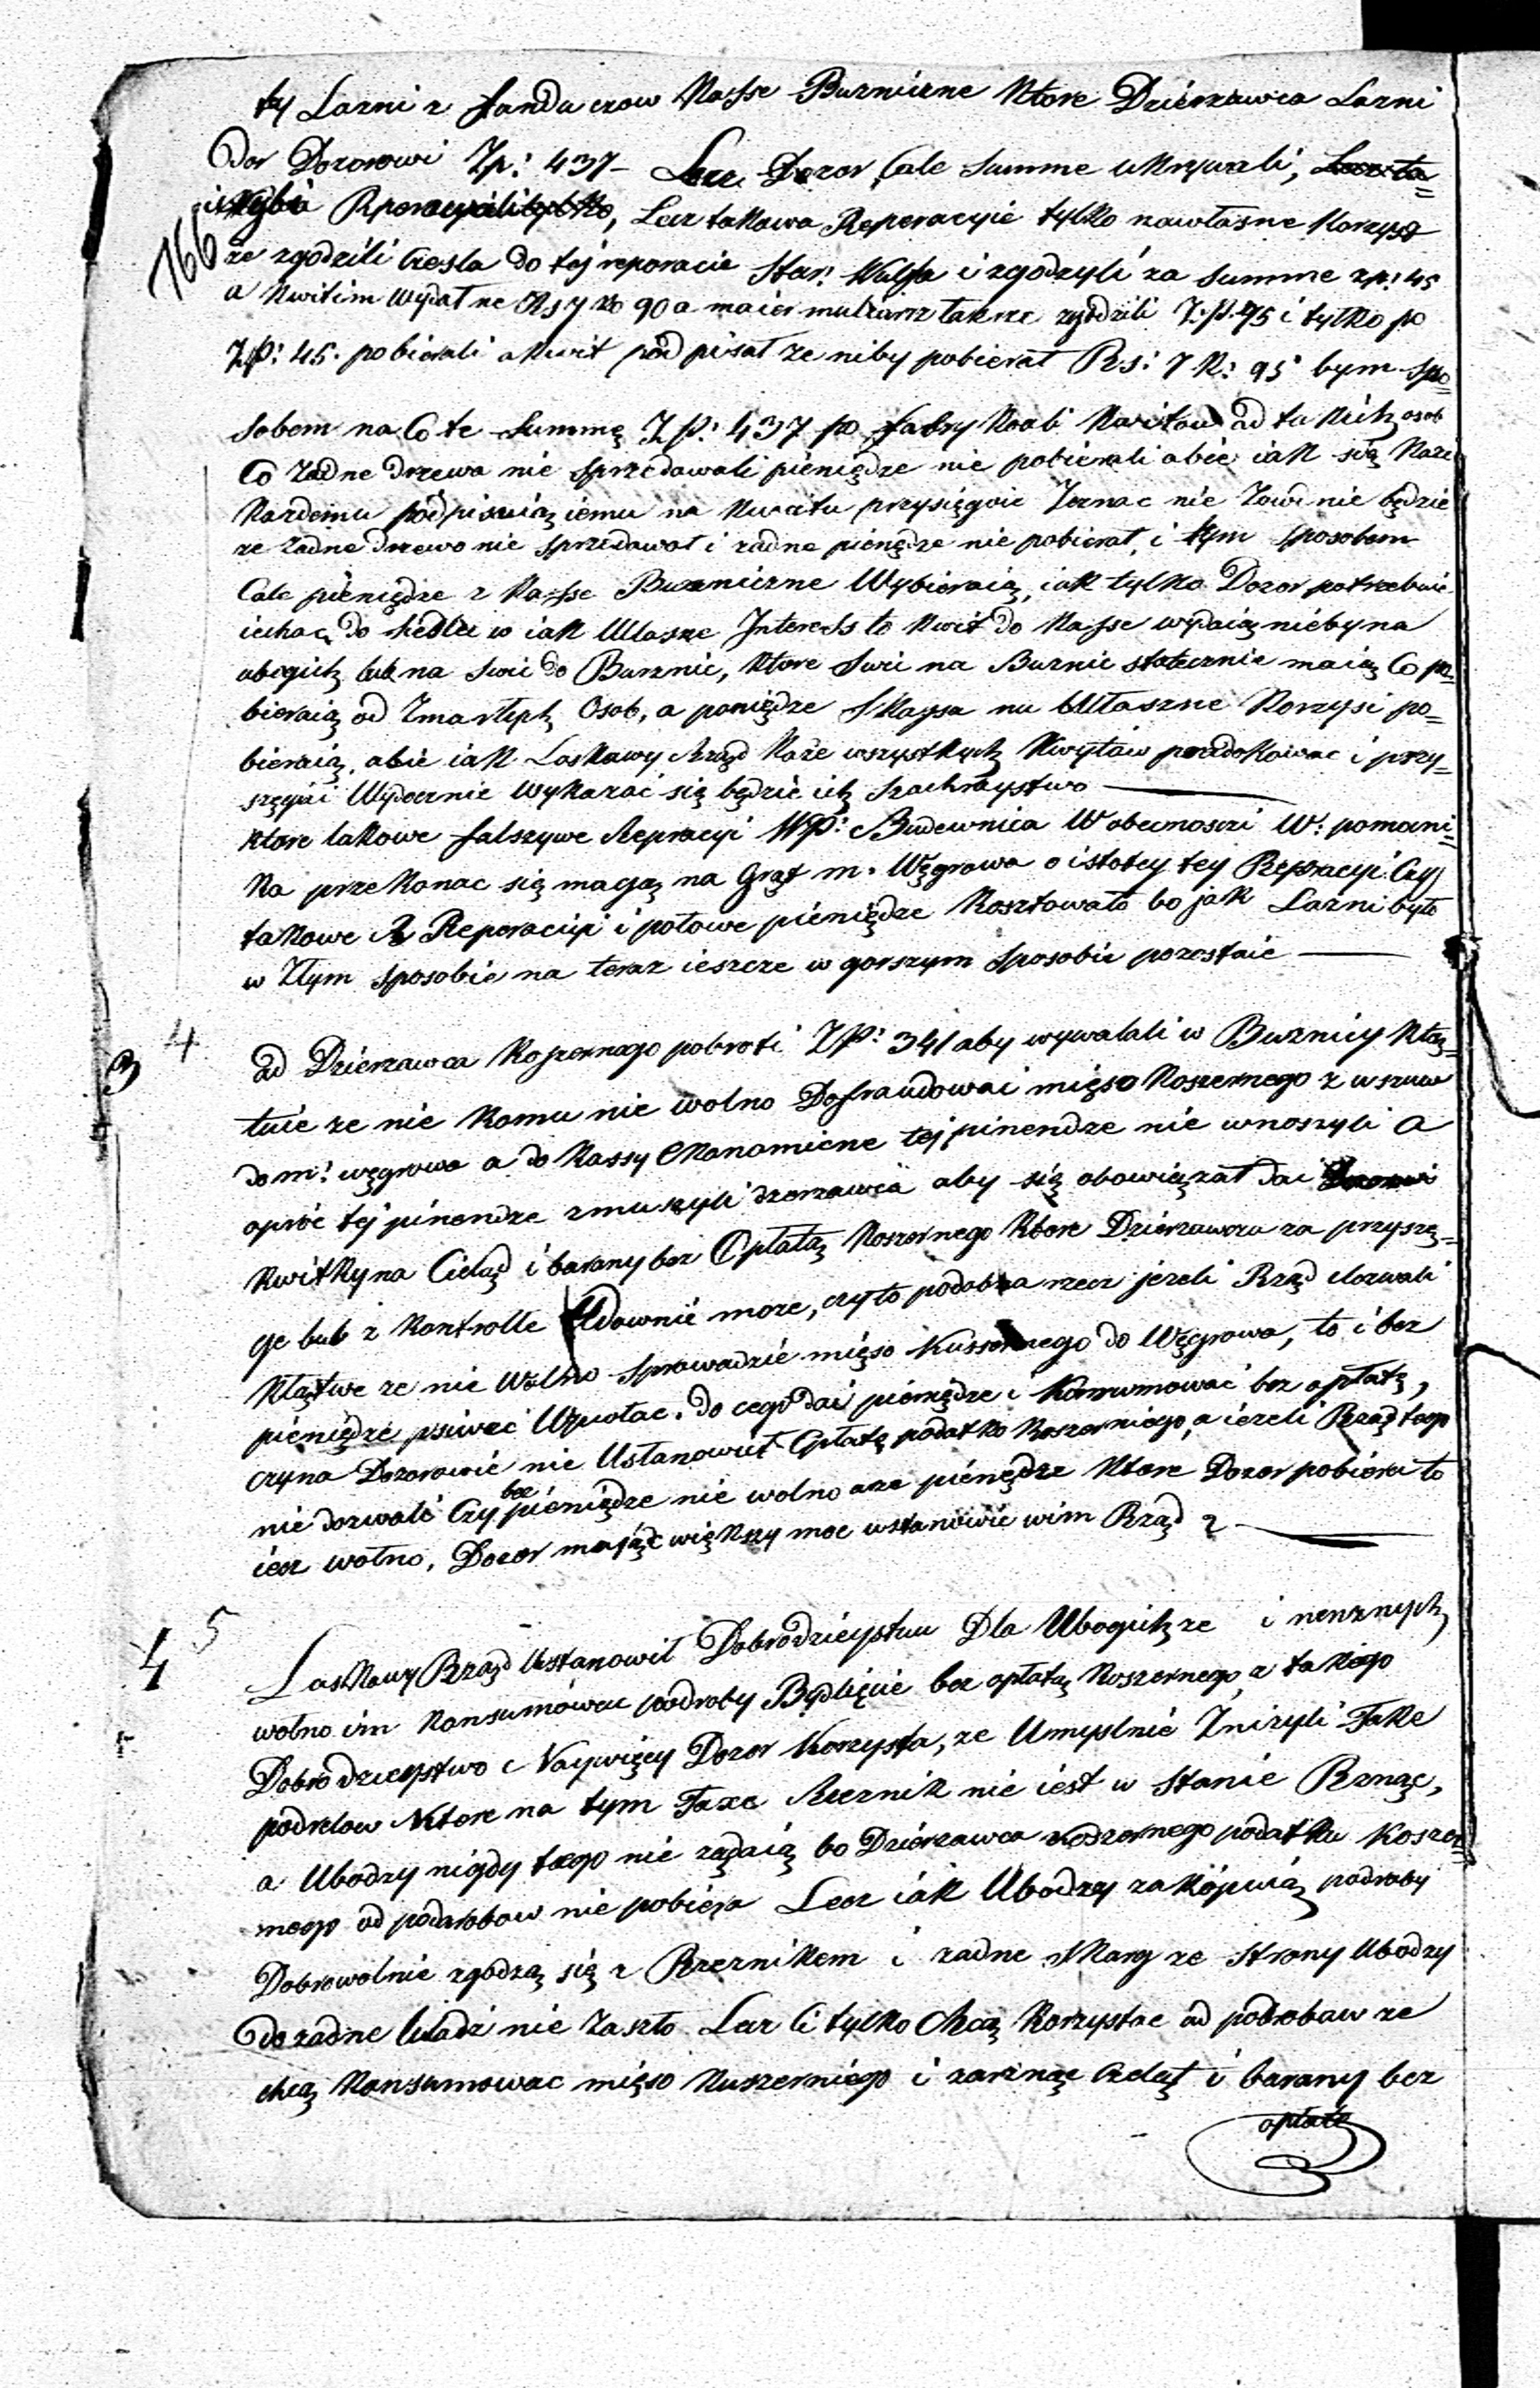 ty Lazni z fanduszow Kasse Buzniczne Ktore Dzierzawca Lazni
Dor Dozorowi Zp: 437 – Lecz Dozor Cale Summe ukrywali, Lecz ta=
Reperacyili tylko, Lecz takowa Reperacyie tylko nawłasne Korzysć
766
ze zgodzili Ciesla do tej reparacie Star: Wulfa i zgodzyli za Summe zp: 45
a Kwitim wydatne Rs 7 ko 90 a maier mularz takze zgodzili Z:p. 45 i tylko po
Zp: 45. pobierali akwit pod pisał ze niby pobierał Rs: 7 K: 95 bym spo=
sobem na Co te Summę Zp: 437 po fabry Koali Kwitow od takich osob
Co żadne drzewa nie sprzedawali pieniędze nie pobierali abie iak się Kaze
Kazdemu podpisuią iemu na Kwitu przysięgoie nie będzie
ze zadne drzewo nie sprzedawał i zadne pienędze nie pobierał, i tym sposobem
Cale pieniędze z Kasse Buzniczne Wybieraią, iak tylko Dozor potrzebuie
iechac do Siedlec w iak Własze Interess to Kwit do Kasse wydaią nieby na
ubogich lub na Swie do Buznic, Ktore Swie na Buznic statecznie maią Co po=
bieraią od Zmarłych Osob, a poniędze S Kassa nu Własne Korzysi po=
bieraią, abie iak Laskawy Rząd Każe wszystkych Kwytow i przy=
szęgni Wydocznie wykazać się będzie ich szachraystwo
ktore takowe falszywe Repracyi WP: Budownica W obecnosci W: pomocni=
ka przekonac się magą na Grąt m. Węgrowa o istotey tey Repracyi Czy
takowe Reperacyi i połowe pieniędze Kosztowało bo jak Lazni było
w Złym sposobie na teraz ieszcze w gorszym sposobie pozostaie
3 4
od Dzierzawca Koszernego pobrali Zp: 341 aby wywalali w Buznicy Klą=
twie ze nie Komu nie wolno Defraudowai mięso Koszernego z wszuw
do m: węgrowa a do Kassy Ekonomicne tej pinendze nie wnoszyli a
oproc tej pinendze zmuszyli dzerzawca aby się obowiązał dai Dozorowi
Kwitky na Cieląd i barany bez Opłatą Koszernego Ktore Dzierzawca za przyszę=
ge lub z Kontrolle Udownie moze, czy to podobna rzecz jezeli Rząd dozwali
Klątwe ze nie Wolno Sprowadzie mięso Kuszernego do Węgrowa, to i bez
pieniędze Wywołac. do cego dai pieniędze i Konsumować bez opłatę,
czyna Dozorowie nie Ustanowił Opłatę podatko Koszerniego, a iezeli Rząd tego
nie dozwoli Czy bez pieniędze nie wolno aza pieniędze Ktore Dozor pobiera to
iecz wolno, Dozor mający większy moc ustanowie wim Rząd ?
4 5
Laskawy Rząd Ustanowil Dobrodzieystwu Dla Ubogich ze i nenznych
wolno im Konsumówac podroby Bydlęcie bez opłatą Koszernego z takiego
Dobrodzieystwo Naywięcy Dozor Korzysta, ze Umyslnie Znizyli Taxe
podrobow Ktore na tym Taxe Rzeznik nie iest w Stanie Rznąc,
a Ubodzy nigdy tego nie ządaią bo Dzierzawca Koszernego podatku Koszer=
nego od podrobow nie pobiera Lecz iak Ubodzy zakópuią podroby
Dobrowolnie zgodzą się z Rzeznikem i zadne Skarg ze Strony Ubodzy
do zadne Wladz nie Zaszło Lecz li tylko Chcą Korzystac od podrobaw ze
chcą Konsumowac mięso Kuszerniego i zarznąc Cieląt i barany bez
opłatę